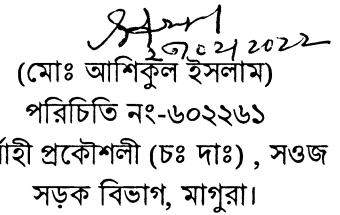 (মোঃ আশিকুল ইসলাম)
পরিচিতি নং-৬০২২৬১
র্বাহী প্রকৌশলী (চঃ দাঃ) , সওজ
সড়ক বিভাগ, মাগুরা।